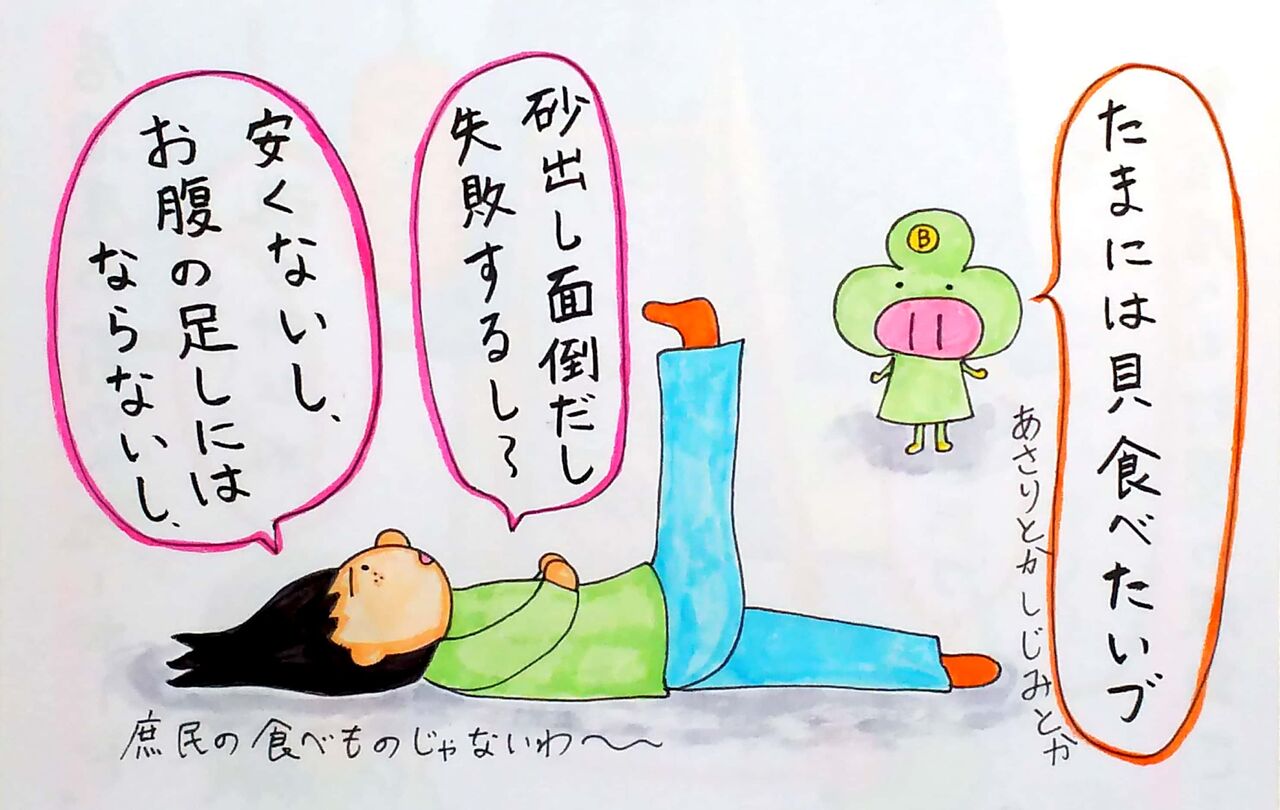 たまには貝食べたいブ
あさりとかしじみとか
B
砂出し面倒だし
失敗するし〜
安くないし、
お腹の足しには
ならないし、
庶民の食べものじゃないわ〜〜